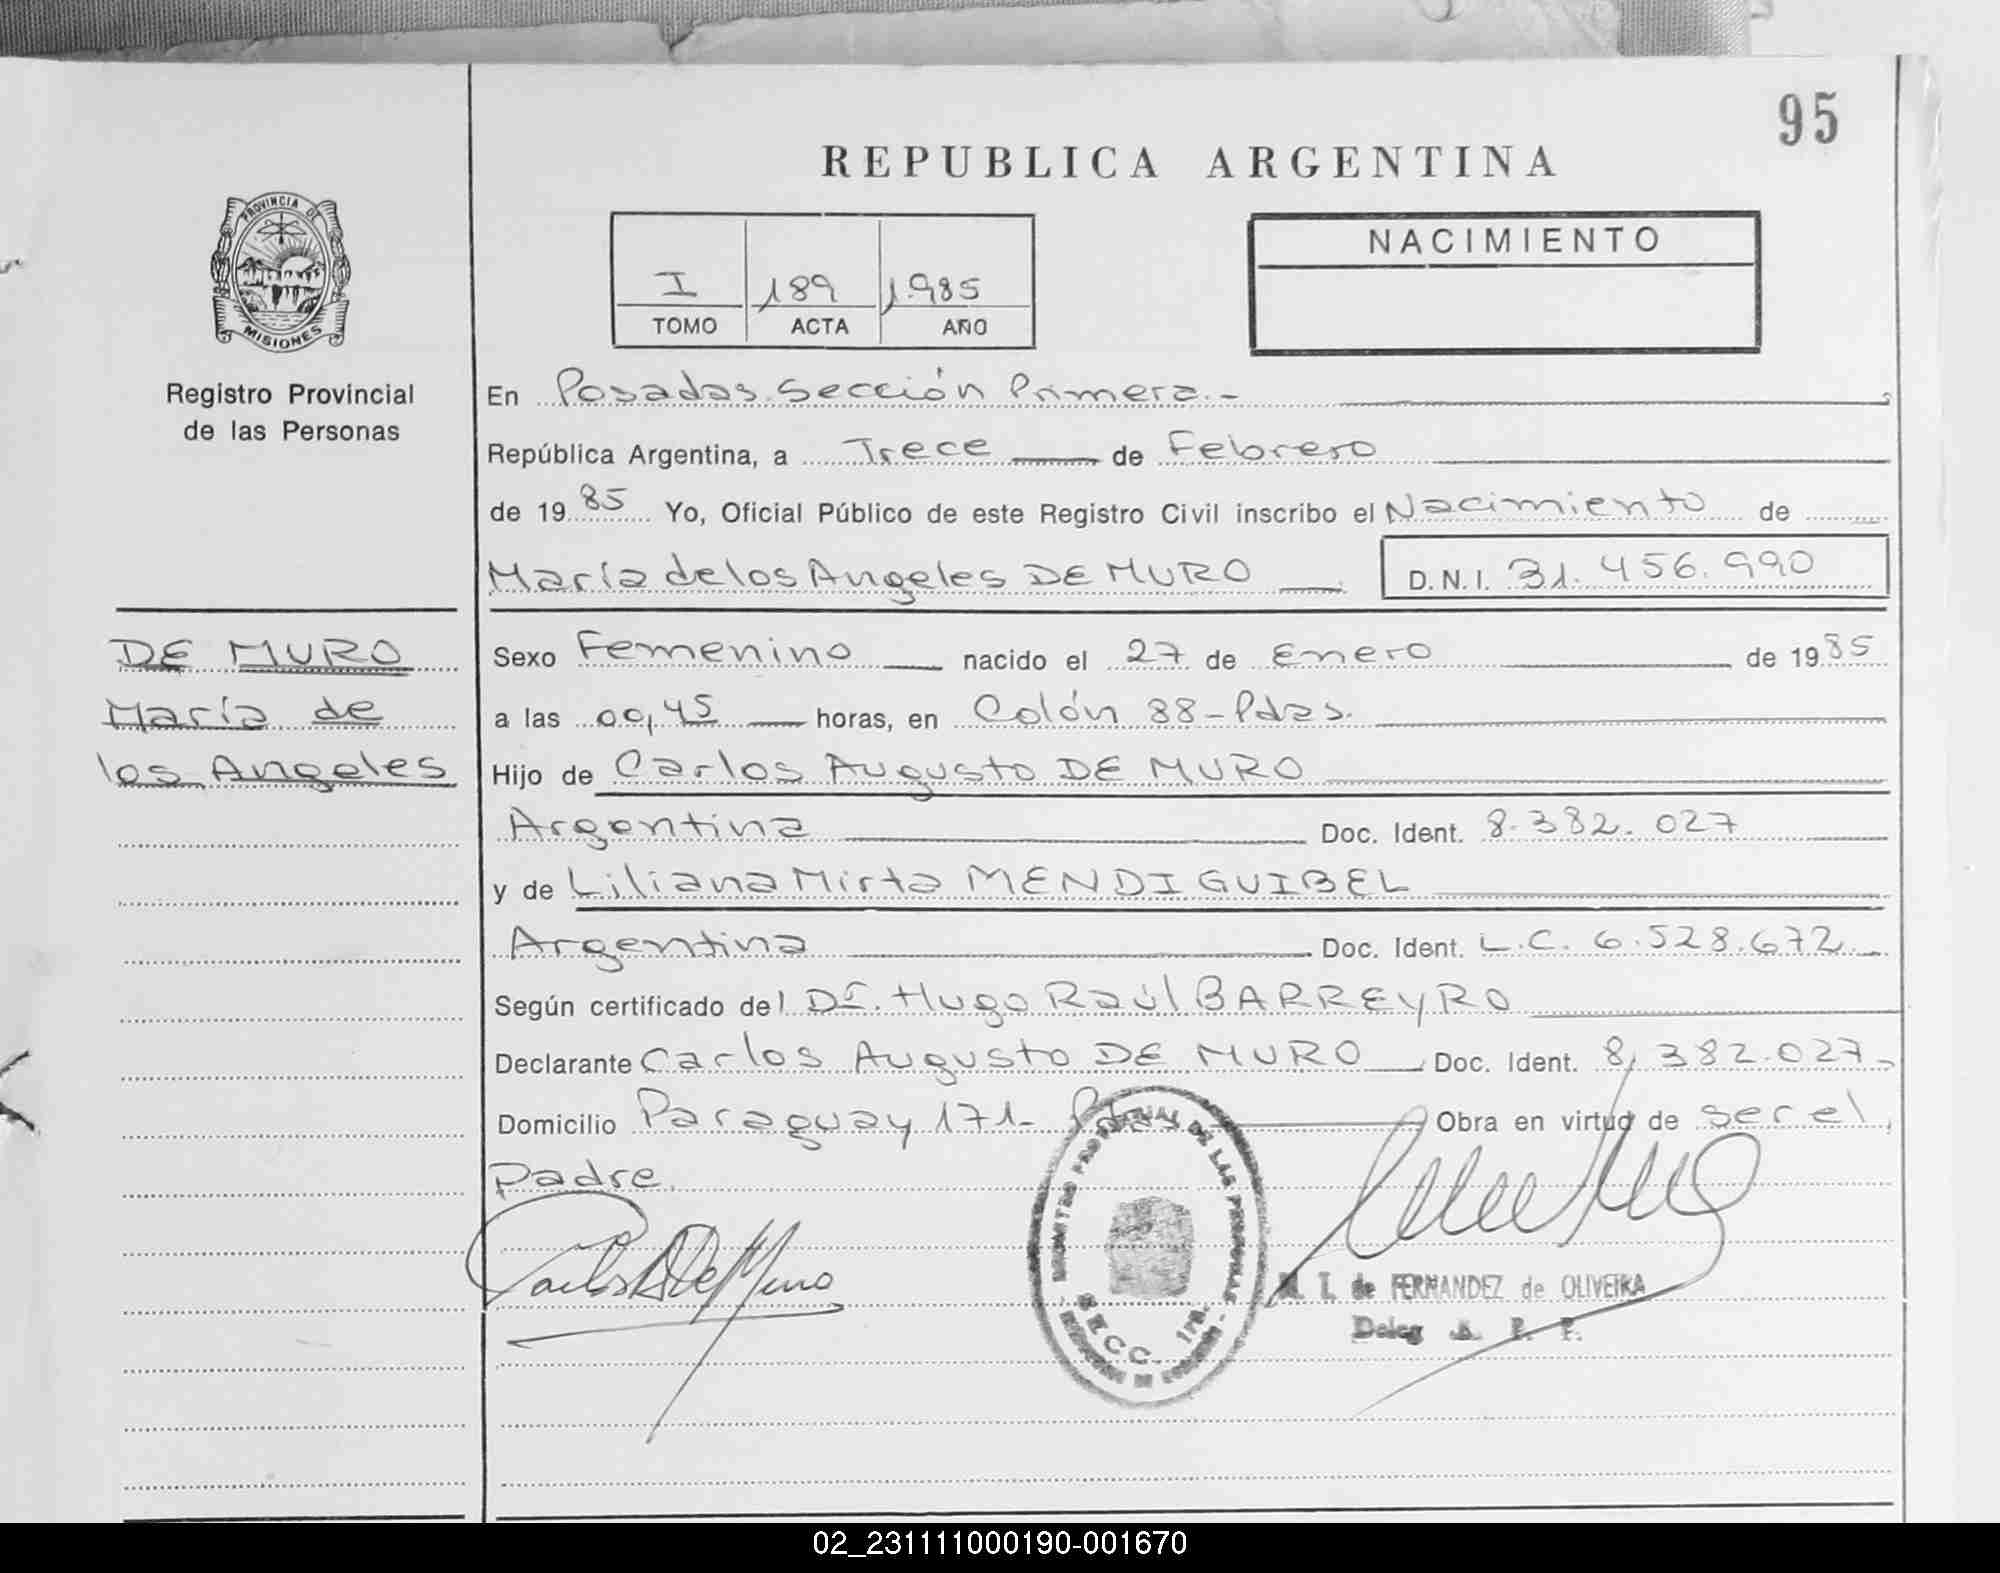 95
REPUBLICA ARGENTINA
PROVINCIA DE
MISIONES
Registro Provincial
de las Personas
I 189 1.985
TOMO ACTA AÑO
NACIMIENTO
En Posadas Sección Primera.-
República Argentina, a Trece de Febrero
de 1985 Yo, Oficial Público de este Registro Civil inscribo el Nacimiento de
María de los Angeles DE MURO D.N.I. 31.456.990
DE MURO
María de
los Angeles
Sexo Femenino nacido el 27 de Enero de 1985
a las 00,45 horas, en Colón 88-Pdas.
Hijo de Carlos Augusto DE MURO
Argentina Doc. Ident. 8.382.027
y de Liliana Mirta MENDIGUIBEL
Argentina Doc. Ident. L.C. 6.528.672
Según certificado del Dr. Hugo Raúl BARREYRO
Declarante Carlos Augusto DE MURO Doc. Ident. 8,382.027
Domicilio Paraguay 171- Pdas Obra en virtud de ser el
Padre.
Carlos A De Muro
DE LAS PERSONAS
SECC. 1ra.
de FERNANDEZ de OLIVEIRA
Deleg
02_231111000190-001670